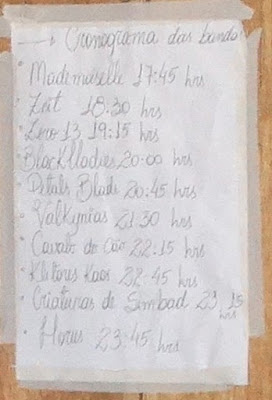 → Cronograma das bandas
• Mademoiselle 17:45 hrs
• Zeit 18:30 hrs
• Zero 13 19:15 hrs
• Black Lladies 20:00 hrs
• Petals Blade 20:45 hrs
• Valkyrias 21:30 hrs
• de 22:15 hrs
• Klitores Kaos 22:45 hrs
• Criaturas de Simbad 23:15 hrs
• Horus 23:45 hrs